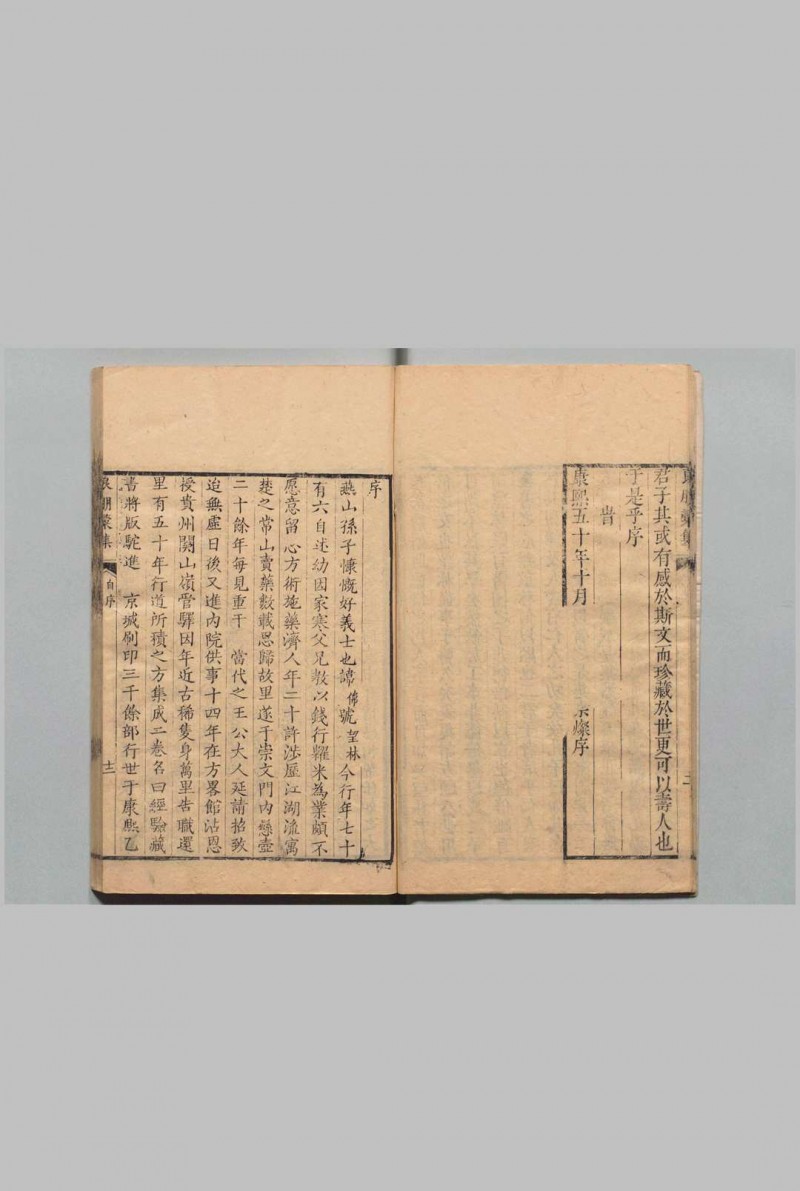 良朋彙集
二
君子其或有感於斯文而珍藏於世更可以壽人也
于是乎序
旹
康熙五十年十月
燦序
序
燕山孫子慷慨好義士也諱偉號望林今行年七十
有六自述幼因家寒父兄教以錢行糶米為業頗不
愿意留心方術施藥濟人年二十許涉歷江湖流寓
楚之常山賣藥數載思歸故里遂于崇文門內懸壺
二十餘年每見重于 當代之王公大人延請招致
迨無虛日後又進內院供事十四年在方畧館沾恩
授貴州關山嶺管驛因年近古稀隻身萬里告職還
里有五十年行道所積之方集成二卷名曰經驗藏
書將版駝進 京城刷印三千餘部行世于康熙乙
良朋彙集
自序
十二